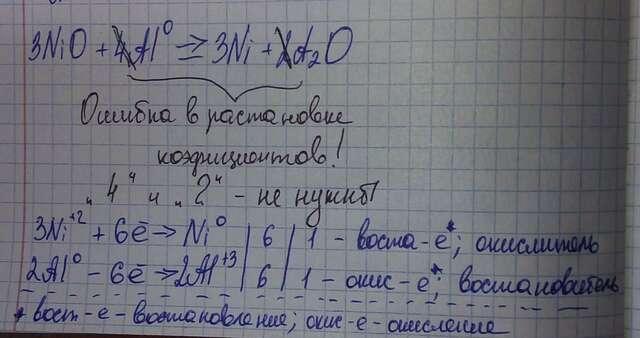 3NiO + 4Al⁰ = 3Ni + 2A₂O
Ошибка в растановке
коэфициентов!
„4“ и „2“ - не нужны
3Ni⁺² + 6ē → Ni⁰ | 6 | 1 - восст-е*; окислитель
2Al⁰ - 6ē → 2Al⁺³ | 6 | 1 - окис-е*; востановитель
* вост-е - востановление; окис-е - окисление